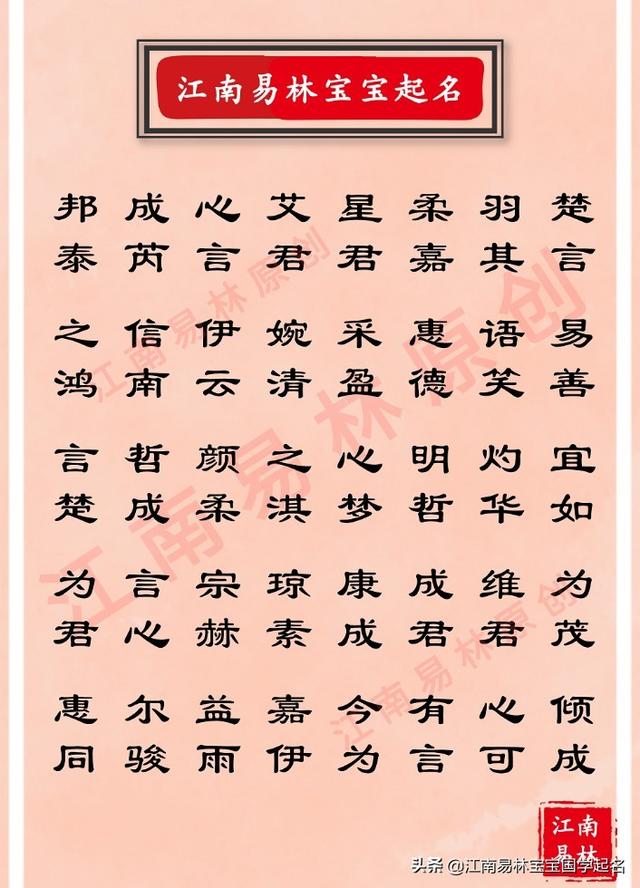 江南易林宝宝起名
邦成心艾星柔羽楚
泰芮言君君嘉其言
之信伊婉采惠语易
鸿南云清盈德笑善
言哲颜之心明灼宜
楚成柔淇梦哲华如
为言宗琼康成维为
君心赫素成君君茂
惠尔益嘉今有心倾
同骏雨伊为言可成
江南易林原创
江南易林原创
江南易林原创
江南
易林
头条 @江南易林宝宝国学起名